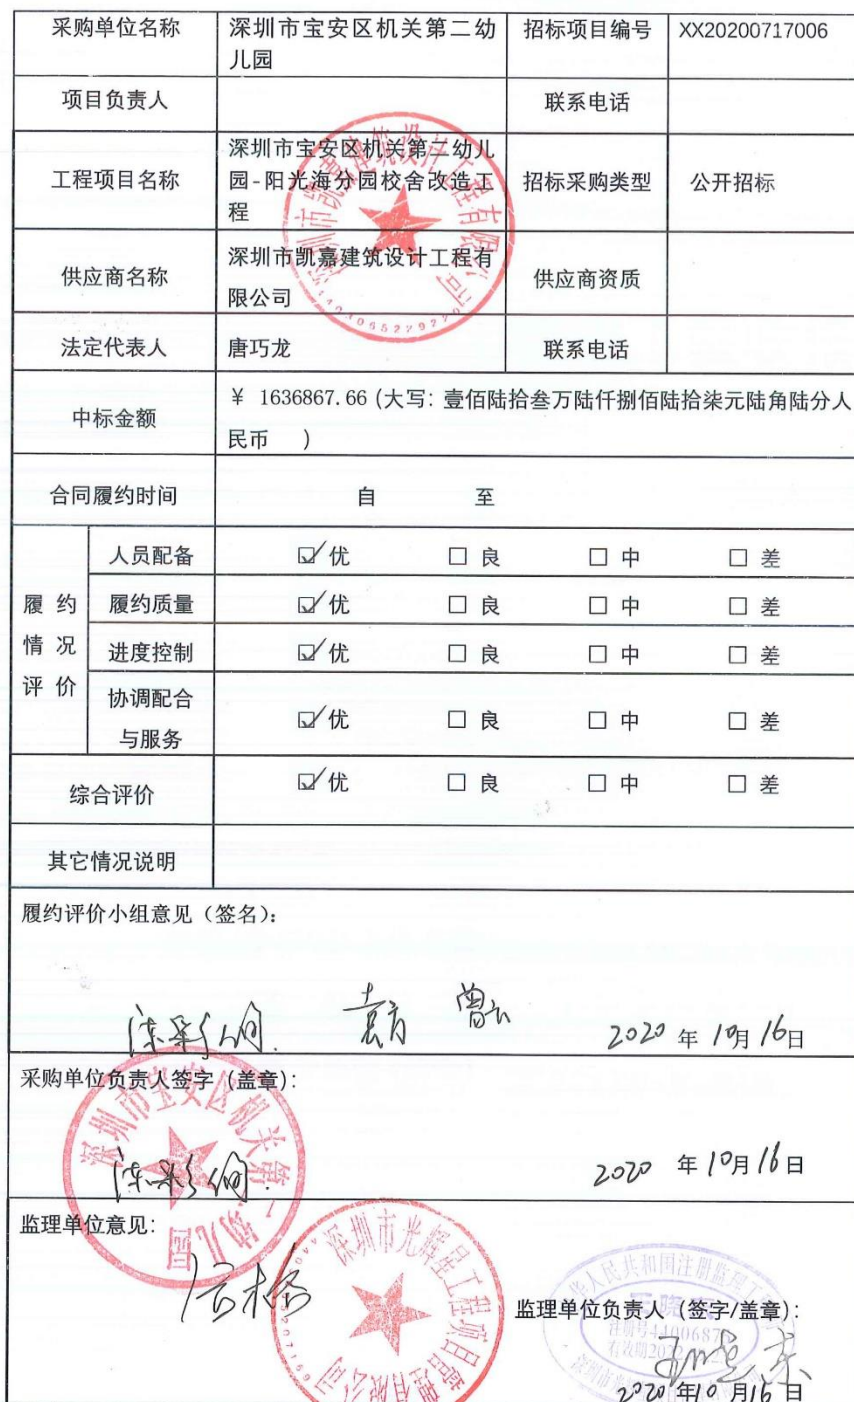 采购单位名称 深圳市宝安区机关第二幼 招标项目编号 XX20200717006
儿园
项目负责人 联系电话
深圳市宝安区机关第二幼儿
工程项目名称 园-阳光海分园校舍改造工 招标采购类型 公开招标
程
供应商名称 深圳市凯嘉建筑设计工程有 供应商资质
限公司
法定代表人 唐巧龙 联系电话
中标金额 ¥ 1636867.66 (大写: 壹佰陆拾叁万陆仟捌佰陆拾柒元陆角陆分人
民币 )
合同履约时间 自 至
履约情况评价
人员配备 ☑优 □良 □中 □差
履约质量 ☑优 □良 □中 □差
进度控制 ☑优 □良 □中 □差
协调配合
与服务 ☑优 □良 □中 □差
综合评价 ☑优 □良 □中 □差
其它情况说明
履约评价小组意见（签名）：
袁方 曾云 2020 年 10月 16日
采购单位负责人签字（盖章）：
2020 年 10月 16日
监理单位意见：
监理单位负责人（签字/盖章）：
2020 年10 月16 日
深圳市凯嘉建筑设计工程有限公司
深圳市光辉星工程项目管理有限公司